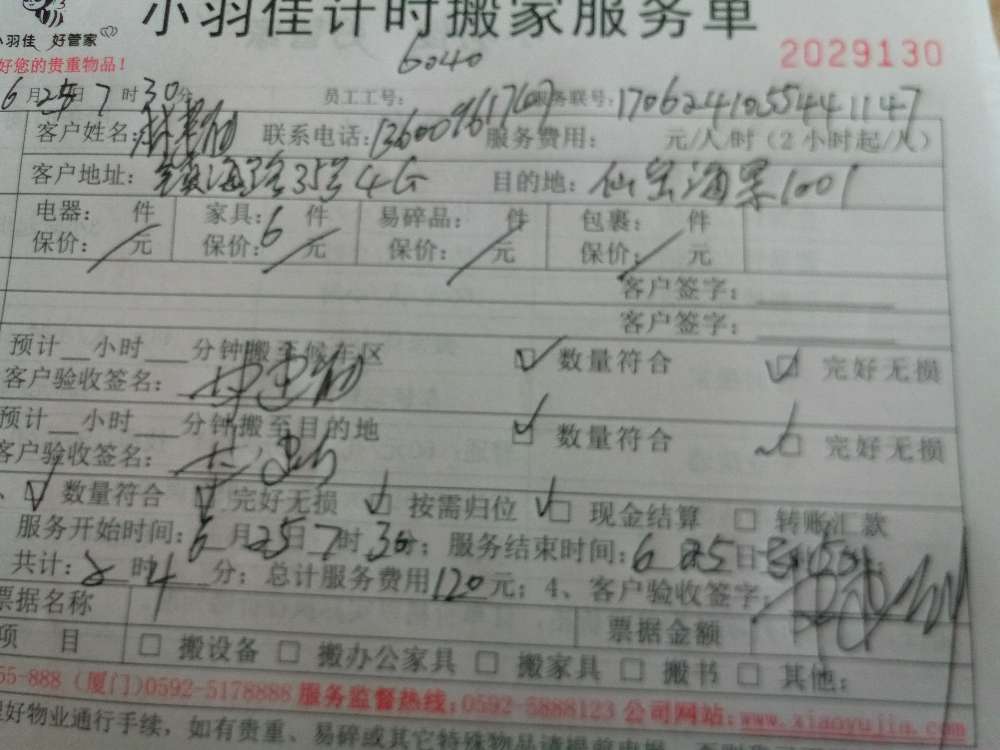 小羽佳计时搬家服务单
小羽佳 好管家
好您的贵重物品!
6040
2029130
6月25日7时30分 员工工号: 服务联号:17062410554441147
客户姓名: 联系电话:13600961707 服务费用: 元/人/时(2小时起/人)
客户地址:镇海路35号4G 目的地:仙岳海景1001
电器: 件 家具:6件 易碎品: 件 包裹: 件
保价:/元 保价:/元 保价:/元 保价:/元
客户签字:
客户签字:
预计__小时___分钟搬至候车区 数量符合 完好无损
客户验收签名:
预计__小时___分钟搬至目的地 数量符合 完好无损
客户验收签名:
数量符合 完好无损 按需归位 现金结算 转账汇款
服务开始时间:6月25日7时30分;服务结束时间:6 25日
共计: 时 分;总计服务费用120元;4、客户验收签字:
票据名称 票据金额
项 目 搬设备 搬办公家具 搬家具 搬书 其他:
55-888 (厦门)0592-5178888 服务监督热线:0592-5888123 公司网站:www.xiaoyujia.com
理好物业通行手续,如有贵重、易碎或其它特殊物品请提前申报